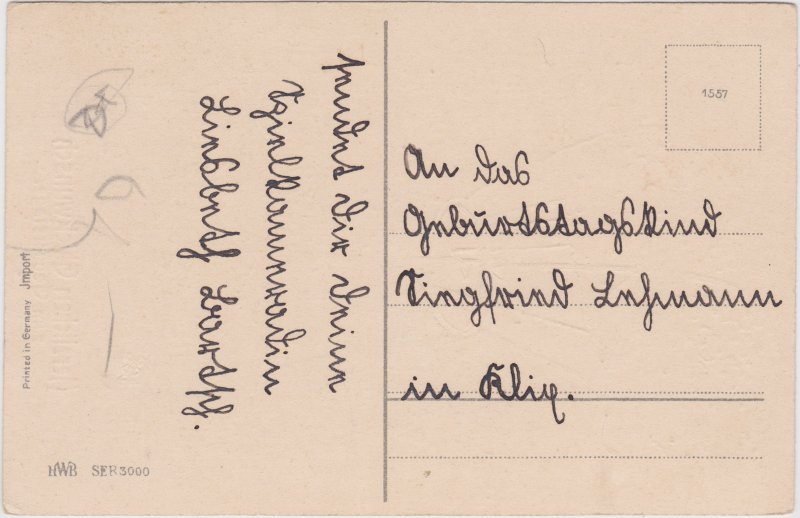 sendet Dir Deine
Spielkameradin
Liesbeth Bartsch.
Printed in Germany Jmport
HWB SER 3000
1557
An das
Geburtstagskind
Siegfried Lehmann
in Klix.